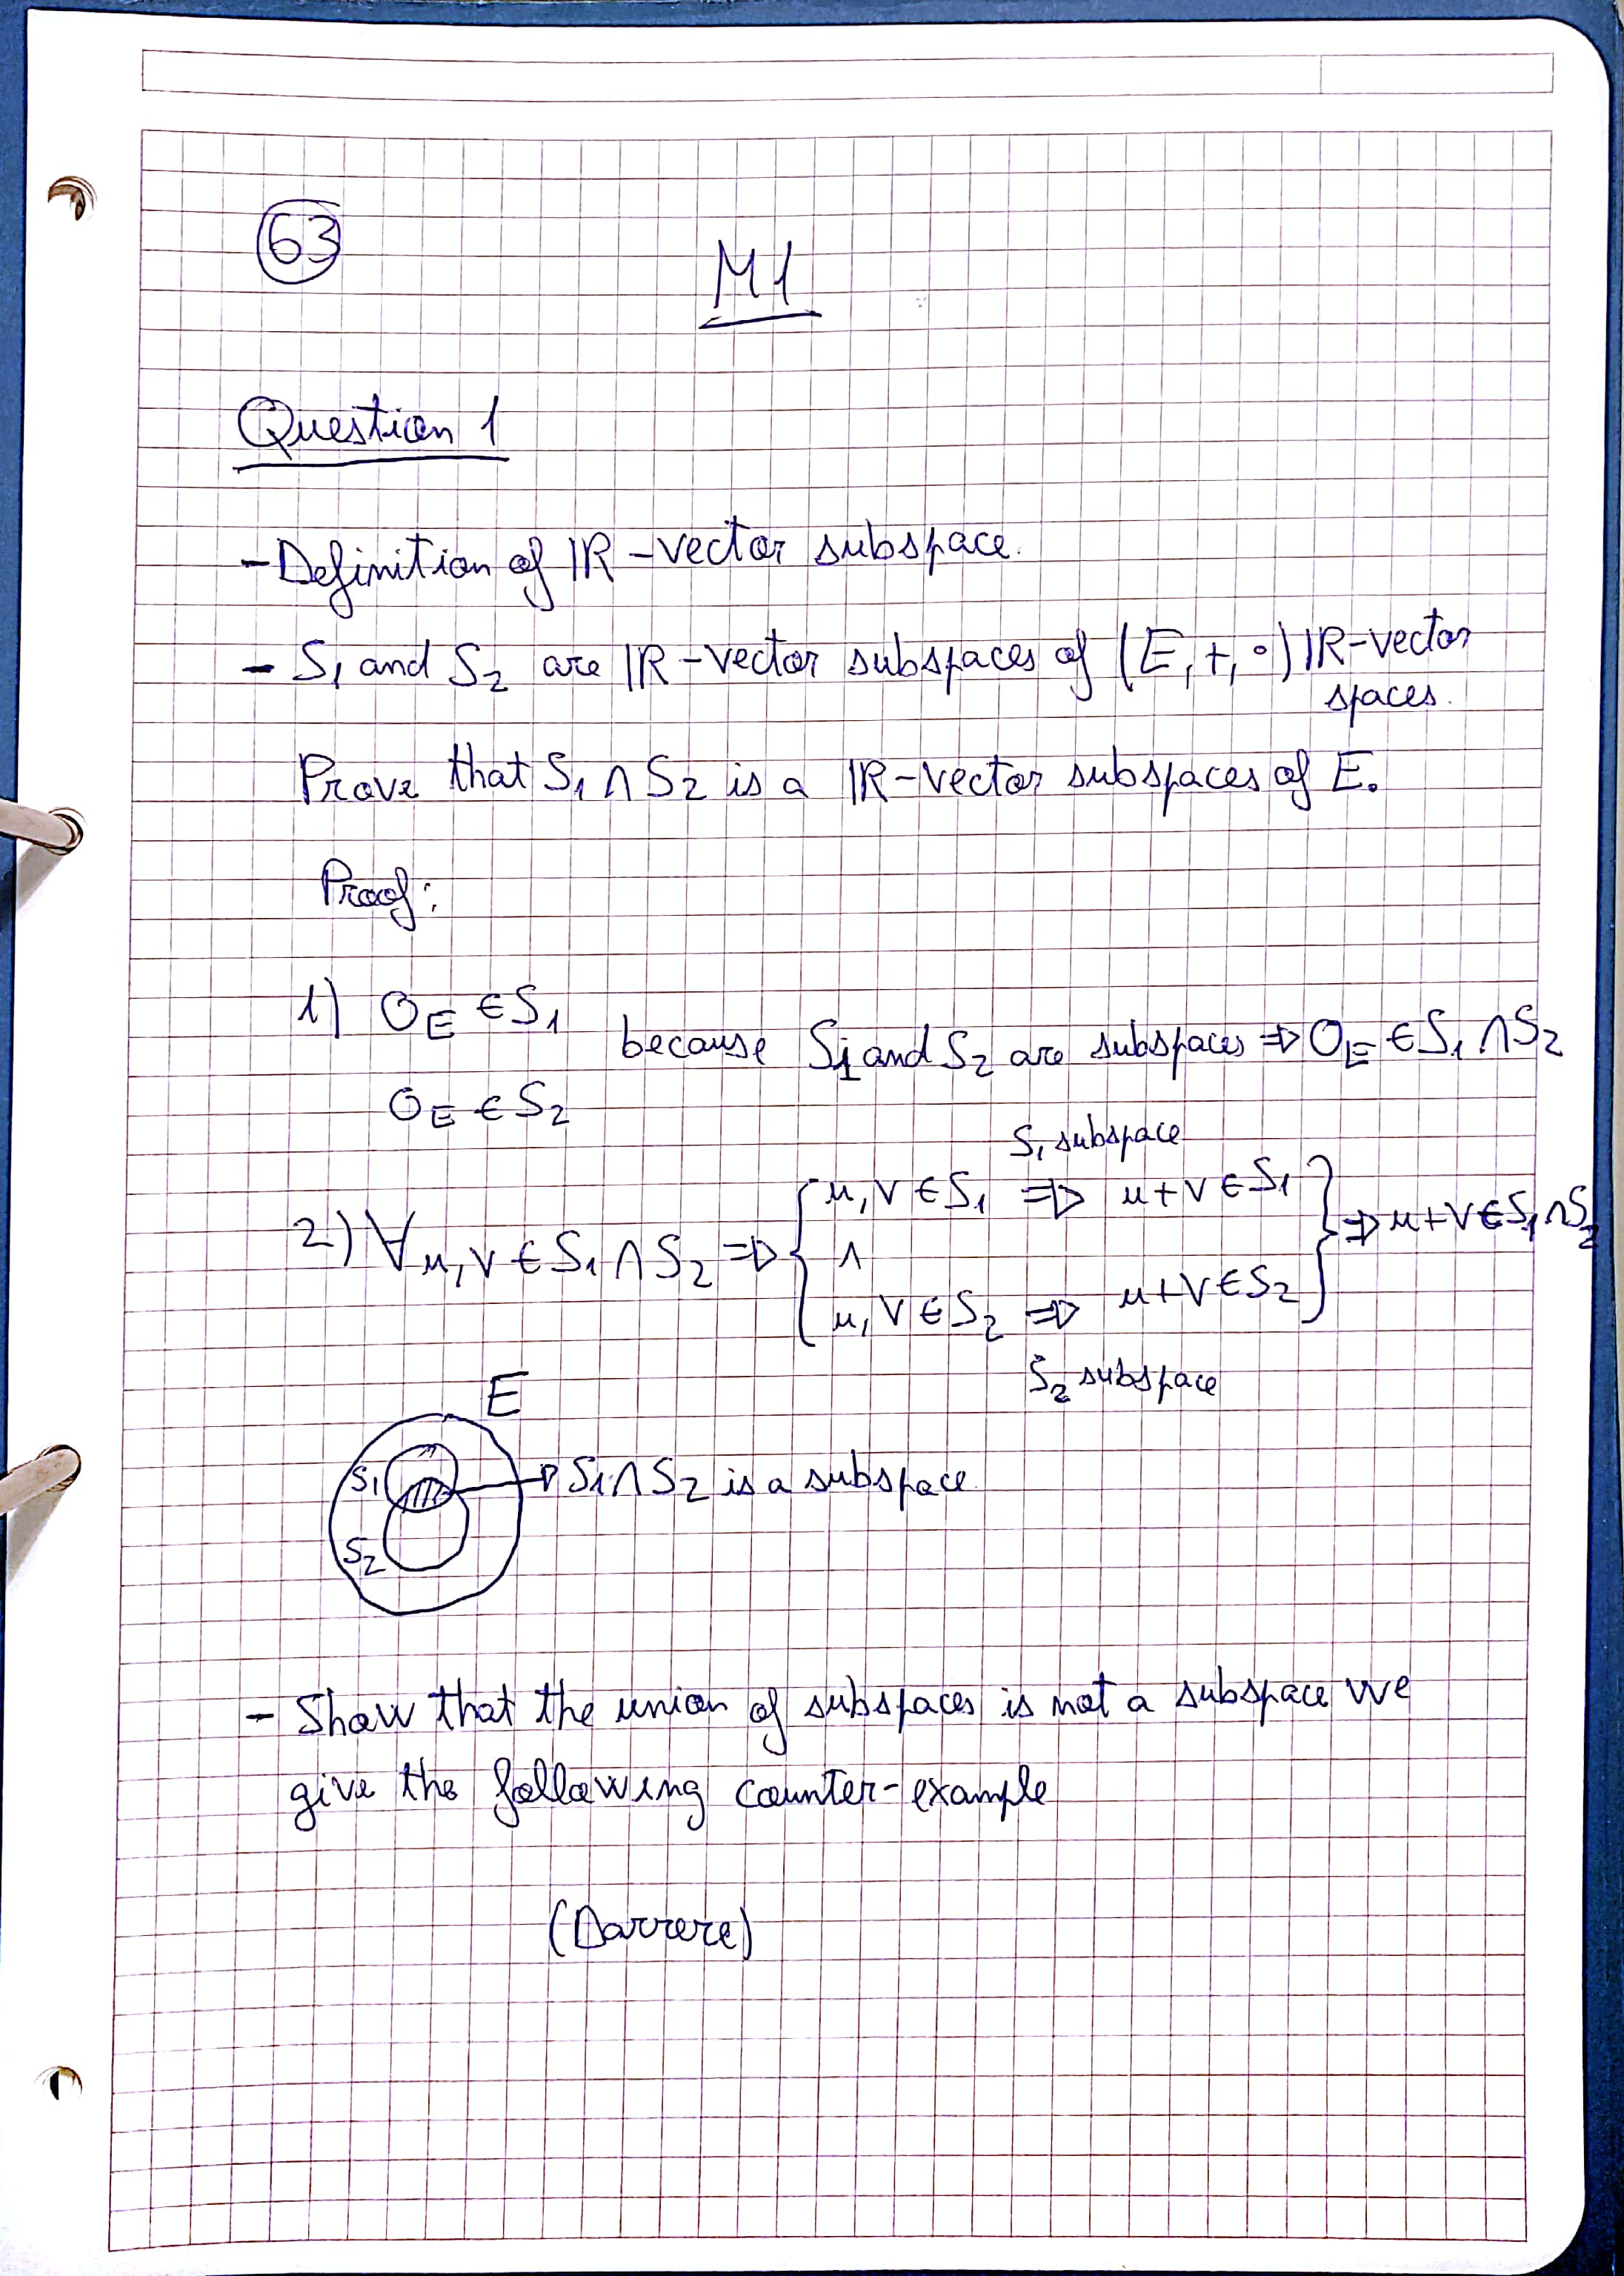 63
M1
Question 1
- Definition of IR-vector subspace.
- S₁ and S₂ are IR-vector subspaces of (E,+,∘) IR-vector
spaces.
Prove that S₁ ∩ S₂ is a IR-vector subspaces of E.
Proof:
1) O_E ∈ S₁
because S₁ and S₂ are subspaces ⇒ O_E ∈ S₁ ∩ S₂
O_E ∈ S₂
S₁ subspace
u, v ∈ S₁ ⇒ u+v ∈ S₁
2) ∀ u, v ∈ S₁ ∩ S₂ ⇒ { ∧ } ⇒ u+v ∈ S₁ ∩ S₂
u, v ∈ S₂ ⇒ u+v ∈ S₂
S₂ subspace
E
S₁ → S₁ ∩ S₂ is a subspace
S₂
- Show that the union of subspaces is not a subspace we
give the following counter-example